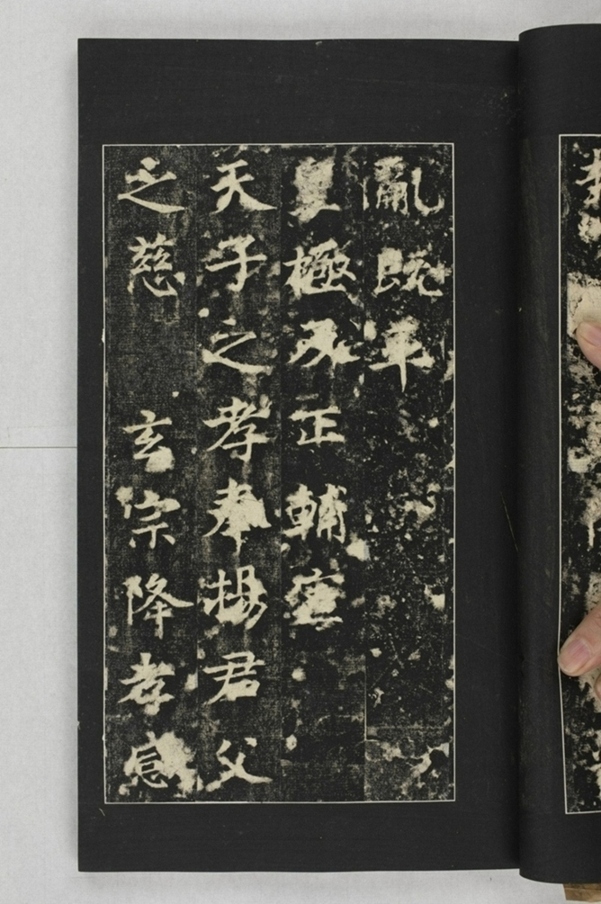 亂既平
皇極反正輔
天子之孝奉揚君父
之慈 玄宗降孝